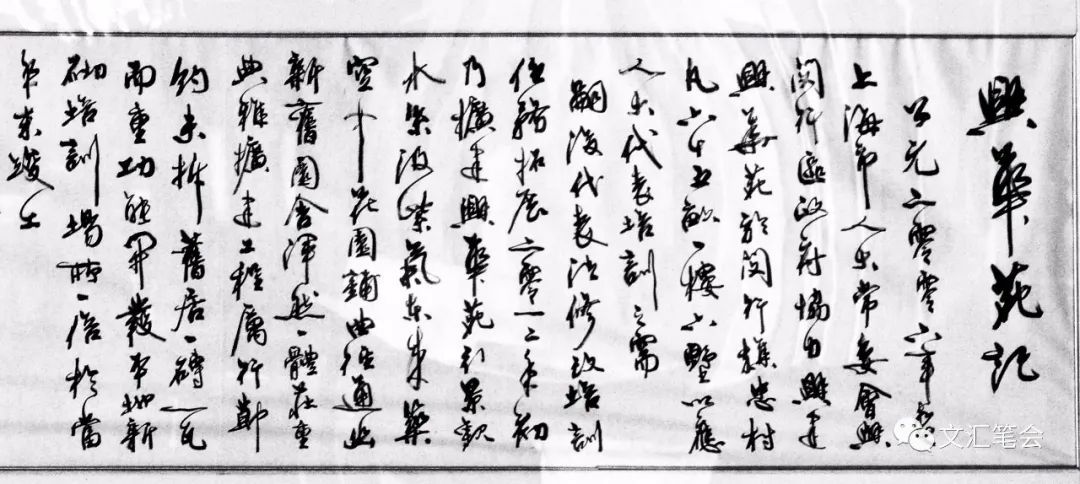 興華苑記
公元二零零六年春
上海市人大常委會與
閔行區政府協力興建
興華苑於閔行旗忠村
凡六十五畝一樓六墅以應
人大代表培訓之需
嗣後代表法修改培訓
任務拓展二零一二年初
乃擴建興華苑引景觀
水染波紫氣東來築
空中花園鋪曲徑通幽
新舊園舍渾然一體莊重
典雅擴建工程厲行節
約未拆舊居一磚一瓦
而重功能開發地新
砌培訓場所一居於當
年末竣工
文汇笔会